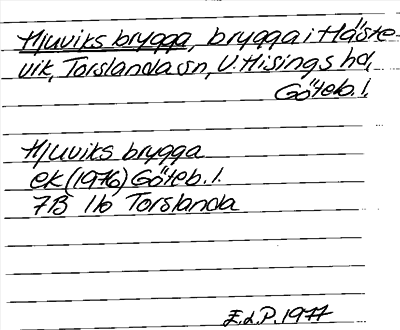 Hjuviks brygga, brygga i Häste
vik, Torslanda sn, V. Hisings hd,
Göteb. l.
Hjuviks brygga
ek (1976) Göteb. l.
7B 1b Torslanda
E.d.P. 1977